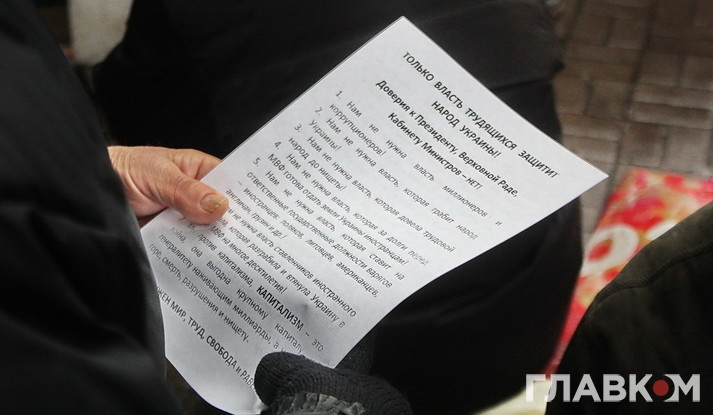 ТОЛЬКО ВЛАСТЬ ТРУДЯЩИХСЯ ЗАЩИТИТ
НАРОД УКРАИНЫ!
Доверия к Президенту, Верховной Раде,
Кабинету Министров – НЕТ!
1. Нам не нужна власть миллионеров и
коррупционеров!
2. Нам не нужна власть, которая грабит народ
Украины!
3. Нам не нужна власть, которая довела трудовой
народ до нищеты!
4. Нам не нужна власть, которая за долги перед
МВФ готова отдать земли Украины иностранцам!
5. Нам не нужна власть, которая ставит на
ответственные государственные должности варягов
иностранцев: поляков, литовцев, американцев,
англичан, грузин и др!
не нужна власть ставленников иностранного
которая разграбила и втянула Украину в
на многое десятилетия!
против капитализма, КАПИТАЛИЗМ – это
она выгодна крупному капиталу
генералитету наживающим миллиарды, а
горе, смерть, разрушения и нищету.
МИР, ТРУД, СВОБОДА И
ГЛАВКОМ